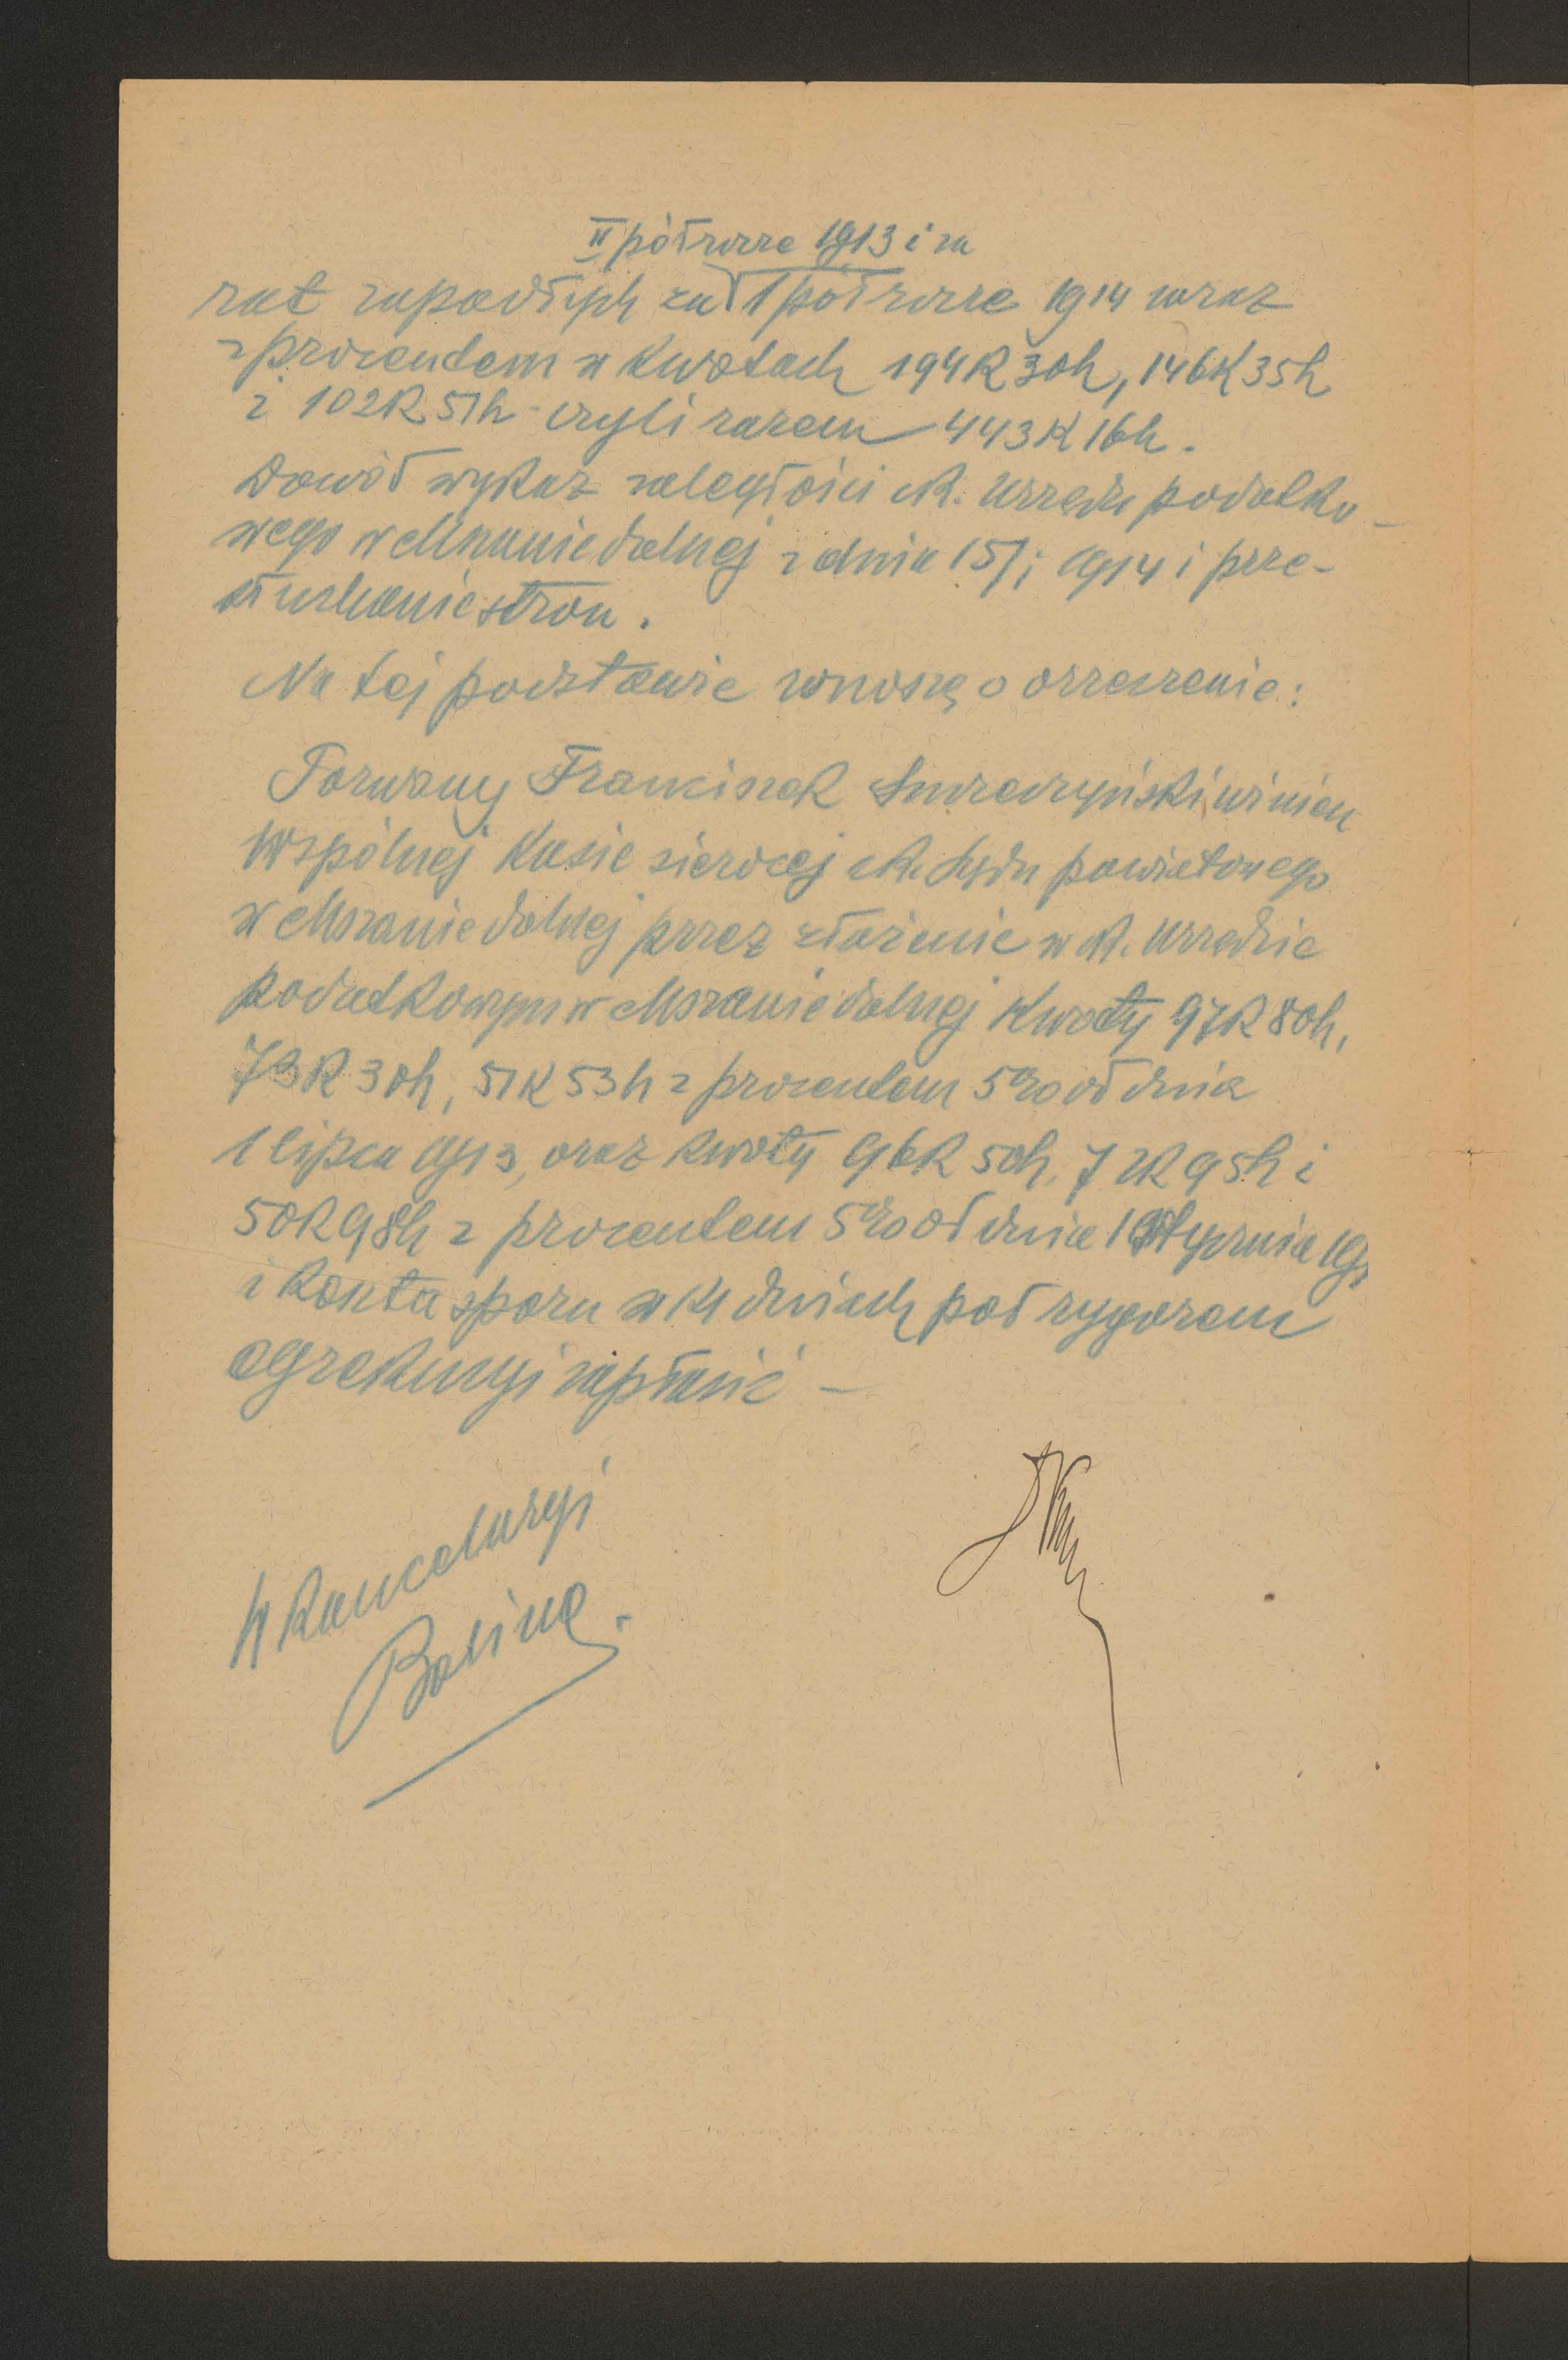 II półrocze 1913 i za
rat zapadłych za I półrocze 1914 wraz
z procentem w kwotach 194K 30h, 146K 35h
i 102K 51h - czyli razem 443K 16h.
Dowód wykaz zaległości ck. Urzędu podatko-
wego w Mszanie dolnej z dnia 15/1 1914 i prze-
słuchanie stron.
Na tej podstawie wnoszę o orzeczenie:
Pozwany Franciszek winien
Wspólnej Kasie sierocej ck. Sądu powiatowego
w Mszanie dolnej przez złożenie w ck. Urzędzie
podatkowym w Mszanie dolnej kwoty 97K 80h,
73K 30h, 51K 53h z procentem 5% od dnia
1 lipca 1913, oraz kwoty 96K 50h, 72K 95h i
50K 98h z procentem 5% od dnia 1 stycznia 19
i koszta sporu w 14 dniach pod rygorem
egzekucyi zapłacić -
W kancelaryi